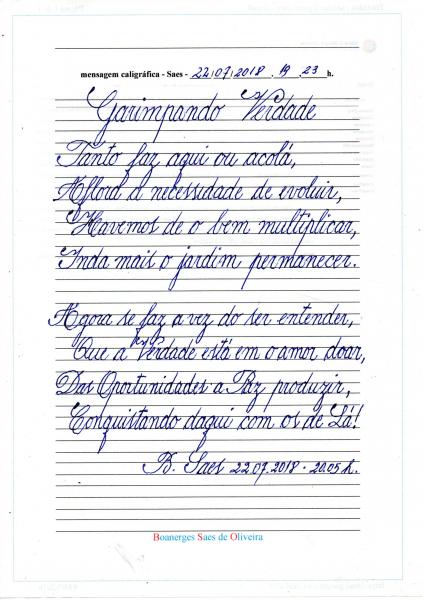 mensagem caligráfica - Saes - 22/07/2018 . 19 . 23 h.
Garimpando Verdade
Tanto faz aqui ou acolá,
Aflora a necessidade de evoluir,
Havemos de o bem multiplicar,
Inda mais o jardim permanecer.
Agora se faz a vez do ser entender,
Que a Verdade está em o amor doar,
Das Oportunidades a Paz produzir,
Conquistando daqui com os de Lá!
B. Saes 22.07.2018 - 20.05 h.
Boanerges Saes de Oliveira